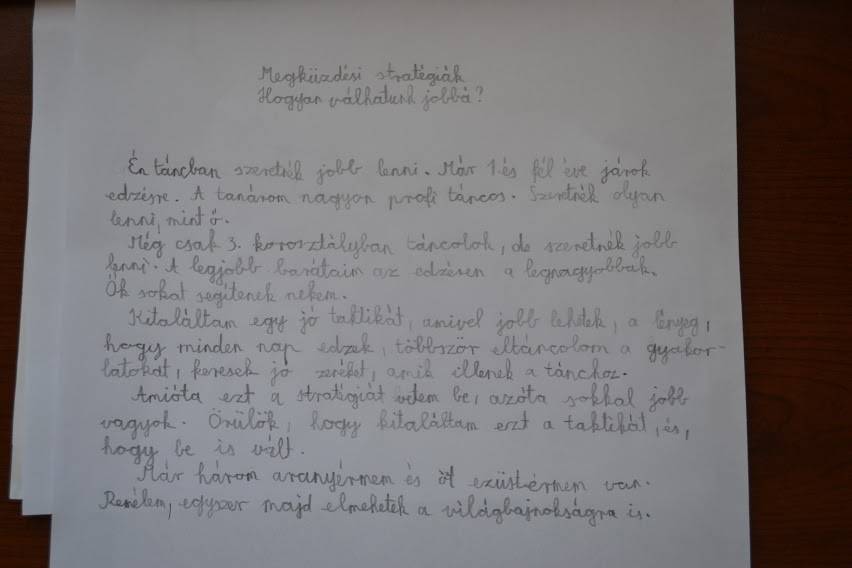 Megküzdési stratégiák
Hogyan válhatunk jobbá?
Én táncban szeretnék jobb lenni. Már 1 és fél éve járok
edzésre. A tanárom nagyon profi táncos. Szeretnék olyan
lenni, mint ő.
Még csak 3. korosztályban táncolok, de szeretnék jobb
lenni. A legjobb barátaim az edzésen a legnagyobbak.
Ők sokat segítenek nekem.
Kitaláltam egy jó taktikát, amivel jobb lehetek, a lényeg,
hogy minden nap edzek, többször eltáncolom a gyakor-
latokat, keresek jó zenéket, amik illenek a tánchoz.
Amióta ezt a stratégiát vetem be, azóta sokkal jobb
vagyok. Örülök, hogy kitaláltam ezt a taktikát, és,
hogy be is vált.
Már három aranyérmem és öt ezüstérmem van.
Remélem, egyszer majd elmehetek a világbajnokságra is.